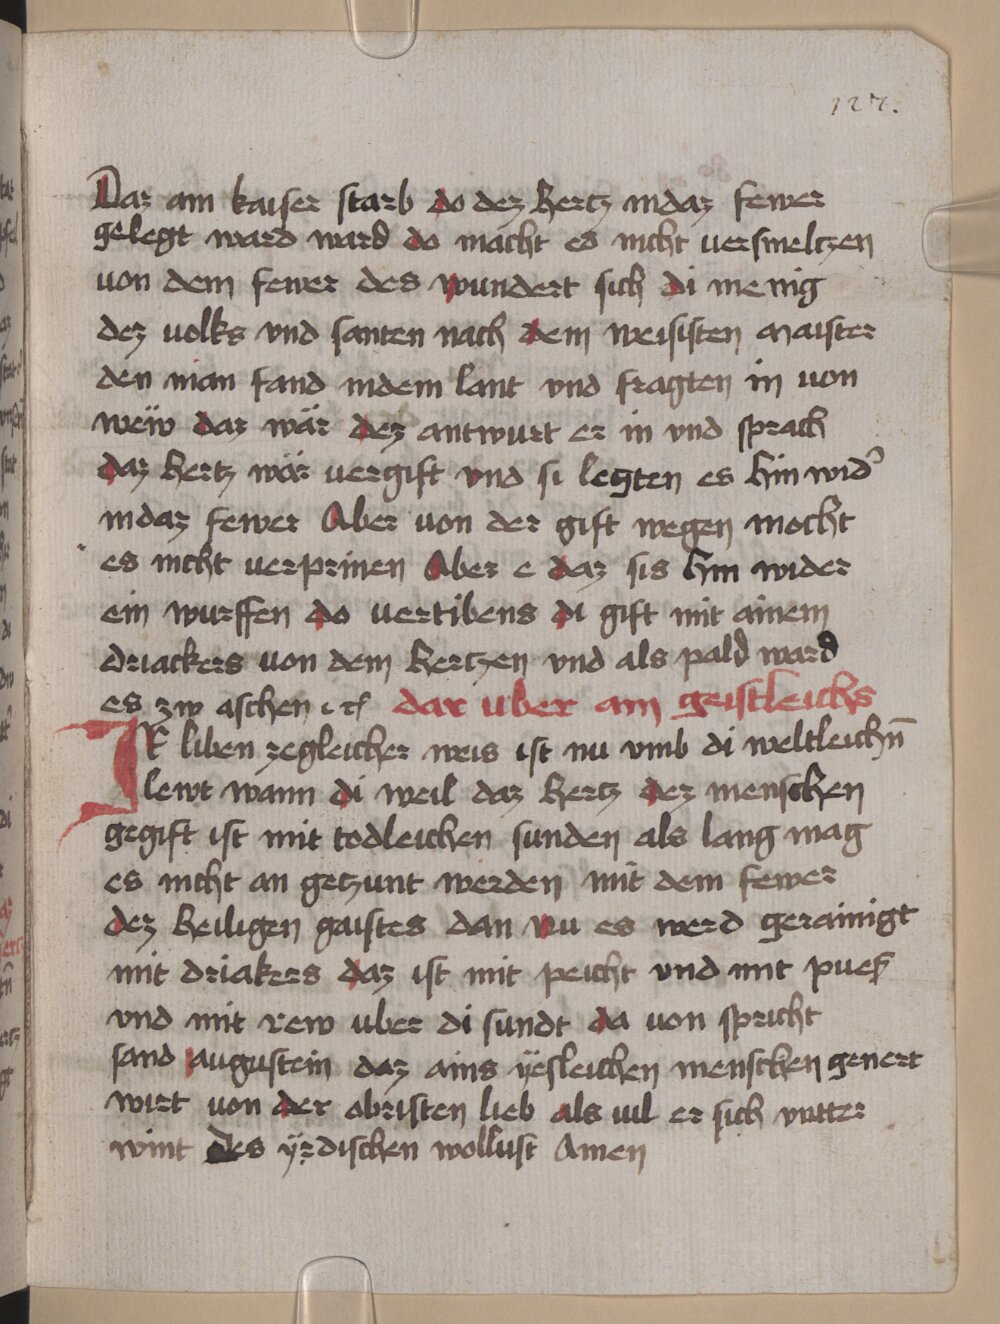 127.
Daz ain kaiser starb do dez hertz indaz fewer
gelegt ward ward do macht es nicht versmeltzen
von dem fewer des wundert sich di menig
dez volks vnd santen nach dem weisisten maister
den man fand indem lant vnd fragten in von
wew daz wär dez antwurt er in vnd sprach
daz hertz wär vergift vnd si legten es hin wid'
indaz fewer Aber von der gift wegen mocht
es nicht verprinen Aber e daz sis hin wider
ein wurffen do vertibens di gift mit ainem
driackers von dem hertzen vnd als pald ward
es zw aschen dar uber ain geistleichs
Ir liben zegleicher weis ist nu vmb di weltleichn̄
lewt wann di weil daz hertz dez menschen
gegift ist mit todleichen sunden als lang mag
es nicht an getzunt werden mit dem fewer
dez heiligen gaistes dan nu es werd gerainigt
mit driakers daz ist mit peicht vnd mit pues
vnd mit rew uber di sundt da von spricht
sand augustein daz ains ÿesleichen menschen genert
wirt von der obristen lieb als vil er sich vntter
wint des ÿrdischen wollust Amen